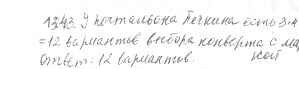 1343. У почтальона Печкина есть 3·4
=12 вариантов выбора конверта с мар
кой
Ответ: 12 вариантов.